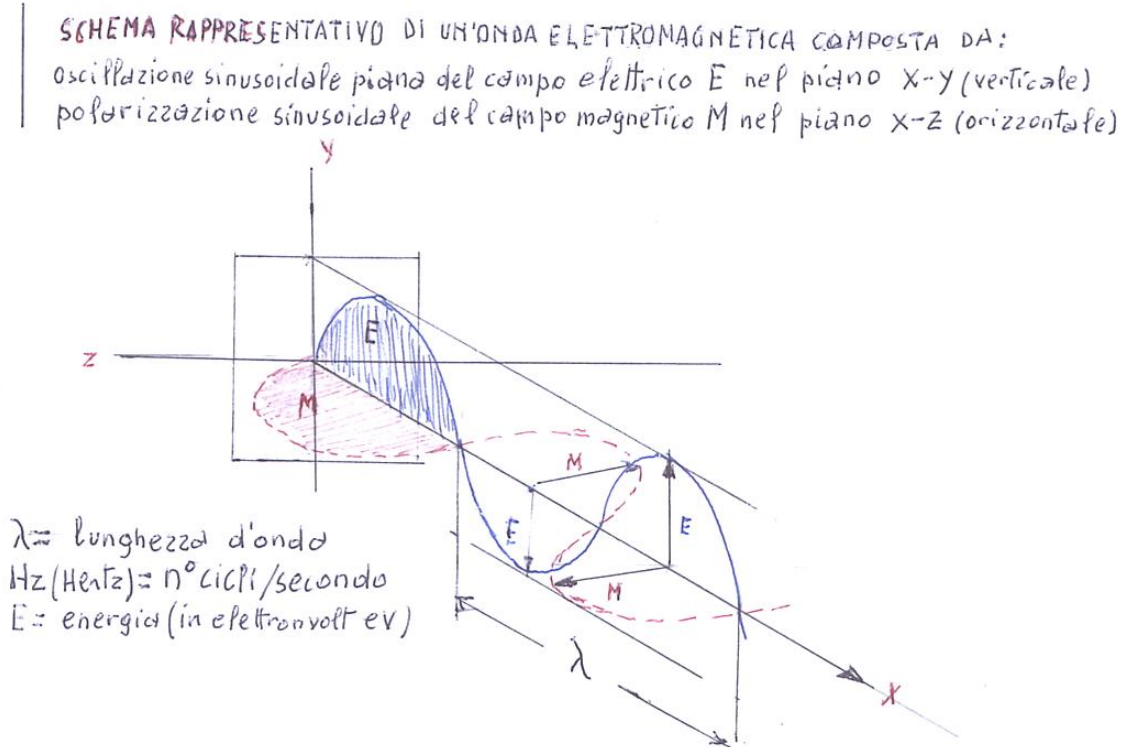 SCHEMA RAPPRESENTATIVO DI UN'ONDA ELETTROMAGNETICA COMPOSTA DA:
oscillazione sinusoidale piana del campo elettrico E nel piano X-Y (verticale)
polarizzazione sinusoidale del campo magnetico M nel piano X-Z (orizzontale)
Y
E
Z
M
M
E
E
M
λ= lunghezza d'onda
Hz (Hertz)= n° cicli/secondo
E= energia (in elettronvolt eV)
λ
X